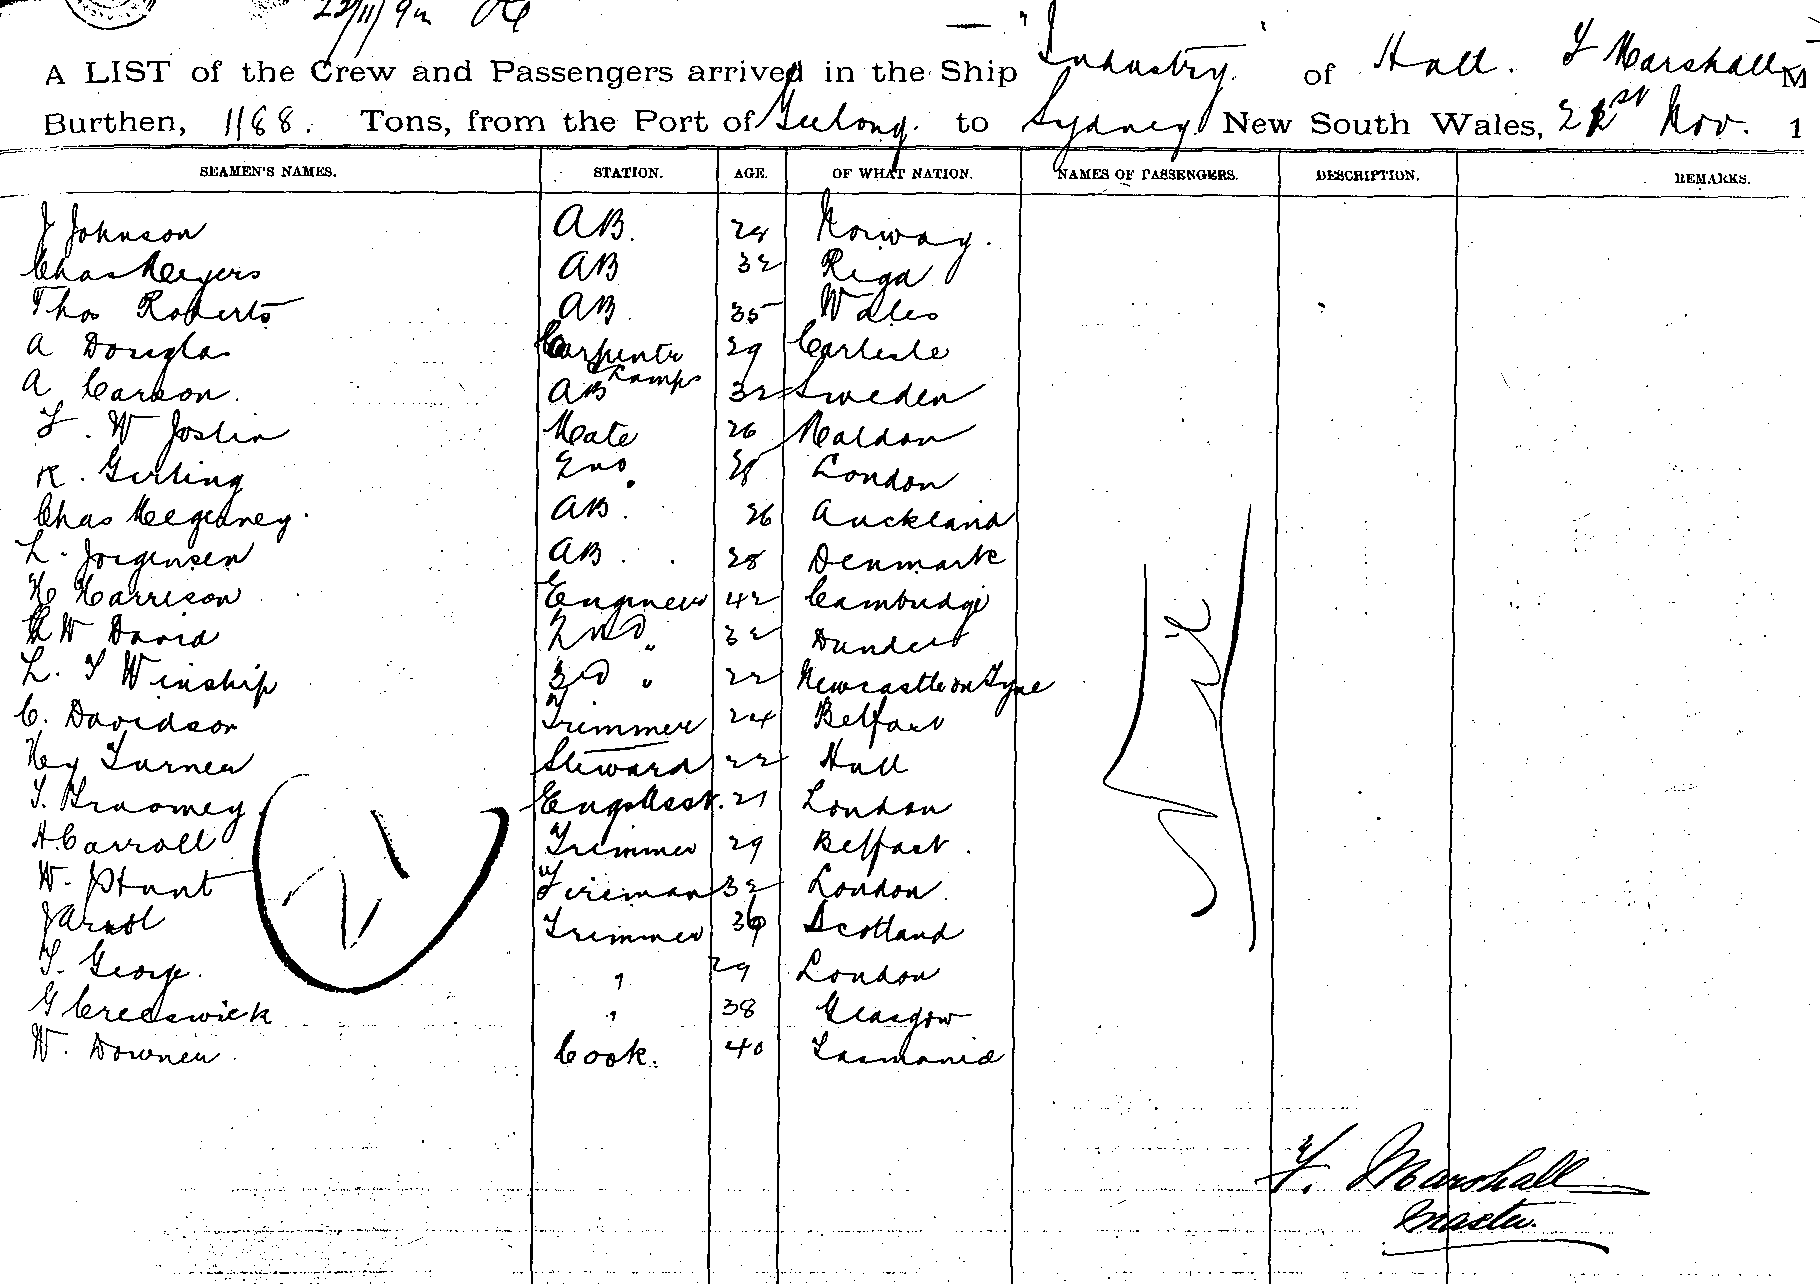 22/11/9
— "Industry" of Hull. F Marshall M
A LIST of the Crew and Passengers arrived in the Ship
Burthen, 1188. Tons, from the Port of Geelong. to Sydney New South Wales, 21st Nov. 1
SEAMEN'S NAMES. STATION. AGE. OF WHAT NATION. NAMES OF PASSENGERS. DESCRIPTION. REMARKS.
J Johnson AB. 28 Norway.
Chas Meyers AB 32 Riga
Thos Roberts AB 35 Wales
A Douglas Carpentr 29 Carlisle
A Carson. AB Lamps 32 Sweden
F. W Joslin Mate 26 Maldon
R. Girling 2nd London
Chas AB. 26 Auckland
L. Jorgensen AB. 28 Denmark
H Harrison Engineer 42 Cambridge
W David 2nd " 32 Dundee
L. T Winship 3rd " 22 Newcastle on Tyne
C. Davidson Trimmer 24 Belfast
Hy Turner Steward 22 Hull
T. Engs Asst. 21 London
H Carroll Trimmer 29 Belfast.
W. Hunt Fireman 32 London.
J Trimmer 36 Scotland
T. George. " 29 London
G Creeswick " 38 Glasgow
W. Downen Cook. 40 Tasmania
21
Nil
F. Marshall
Master.